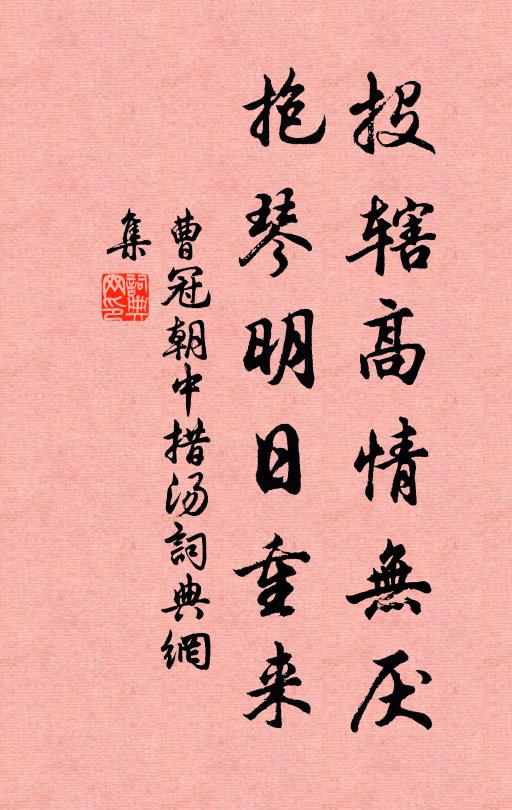 投辖高情無厌
抱琴明日重来
曹冠朝中措汤詞典網
集
詞典网印